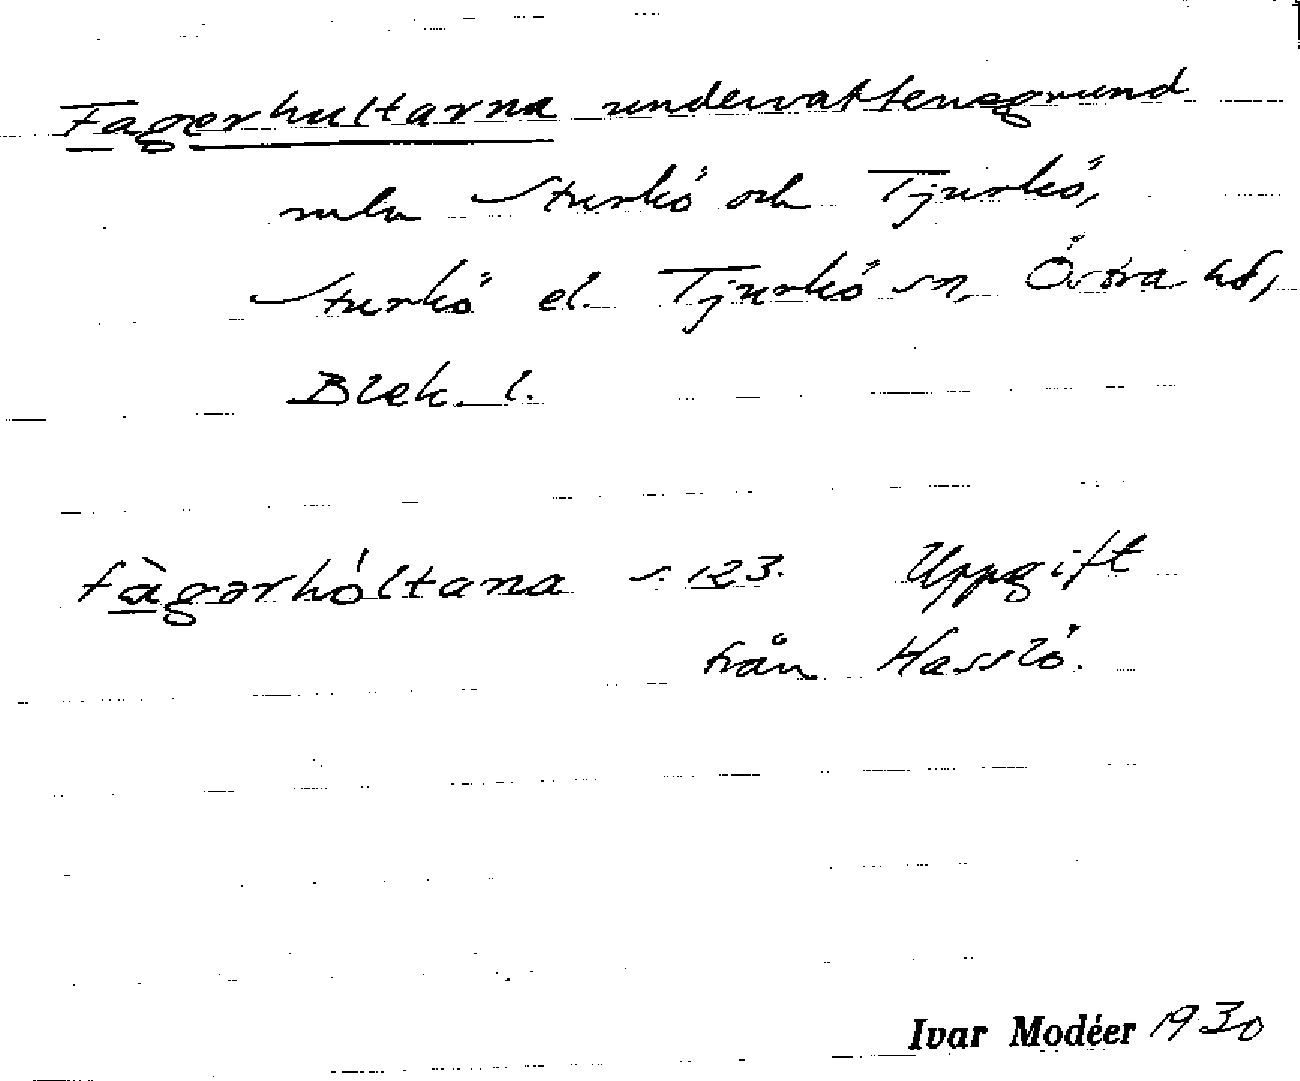 Fagerhultarna undervattensgrund
mln Sturkö och Tjurkö,
Sturkö el. Tjurkö sn, Östra hd,
Blek. l.
fàgərhóltana s. 123. Uppgift
från Hasslö.
Ivar Modéer 1930